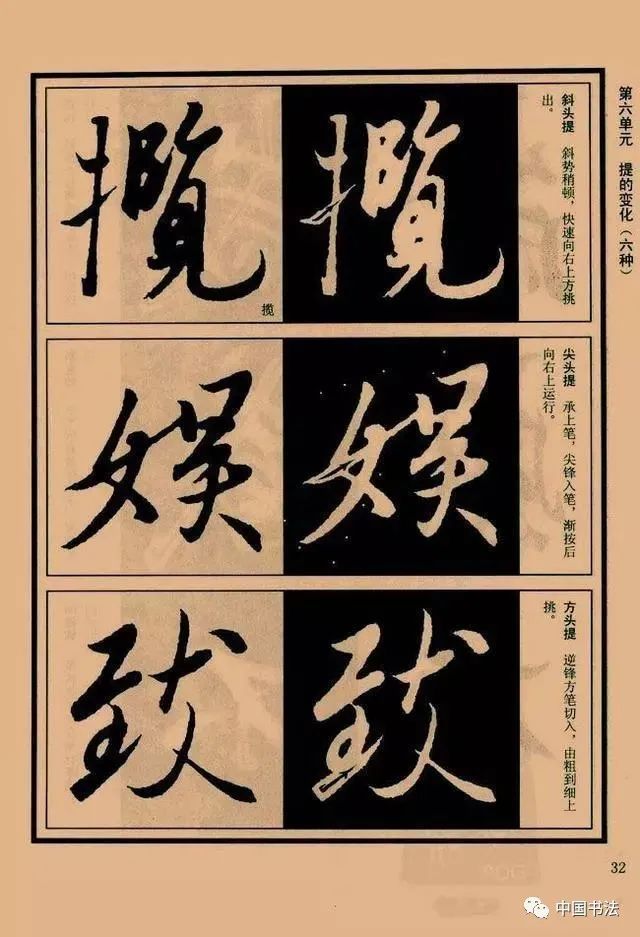 第六单元　提的变化（六种）
斜头提　斜势稍顿，快速向右上方挑
出。
攬
攬
揽
尖头提　承上笔，尖锋入笔，渐按后
向右上运行。
娱
娱
方头提　逆锋方笔切入，由粗到细上
挑。
致
致
32
中国书法